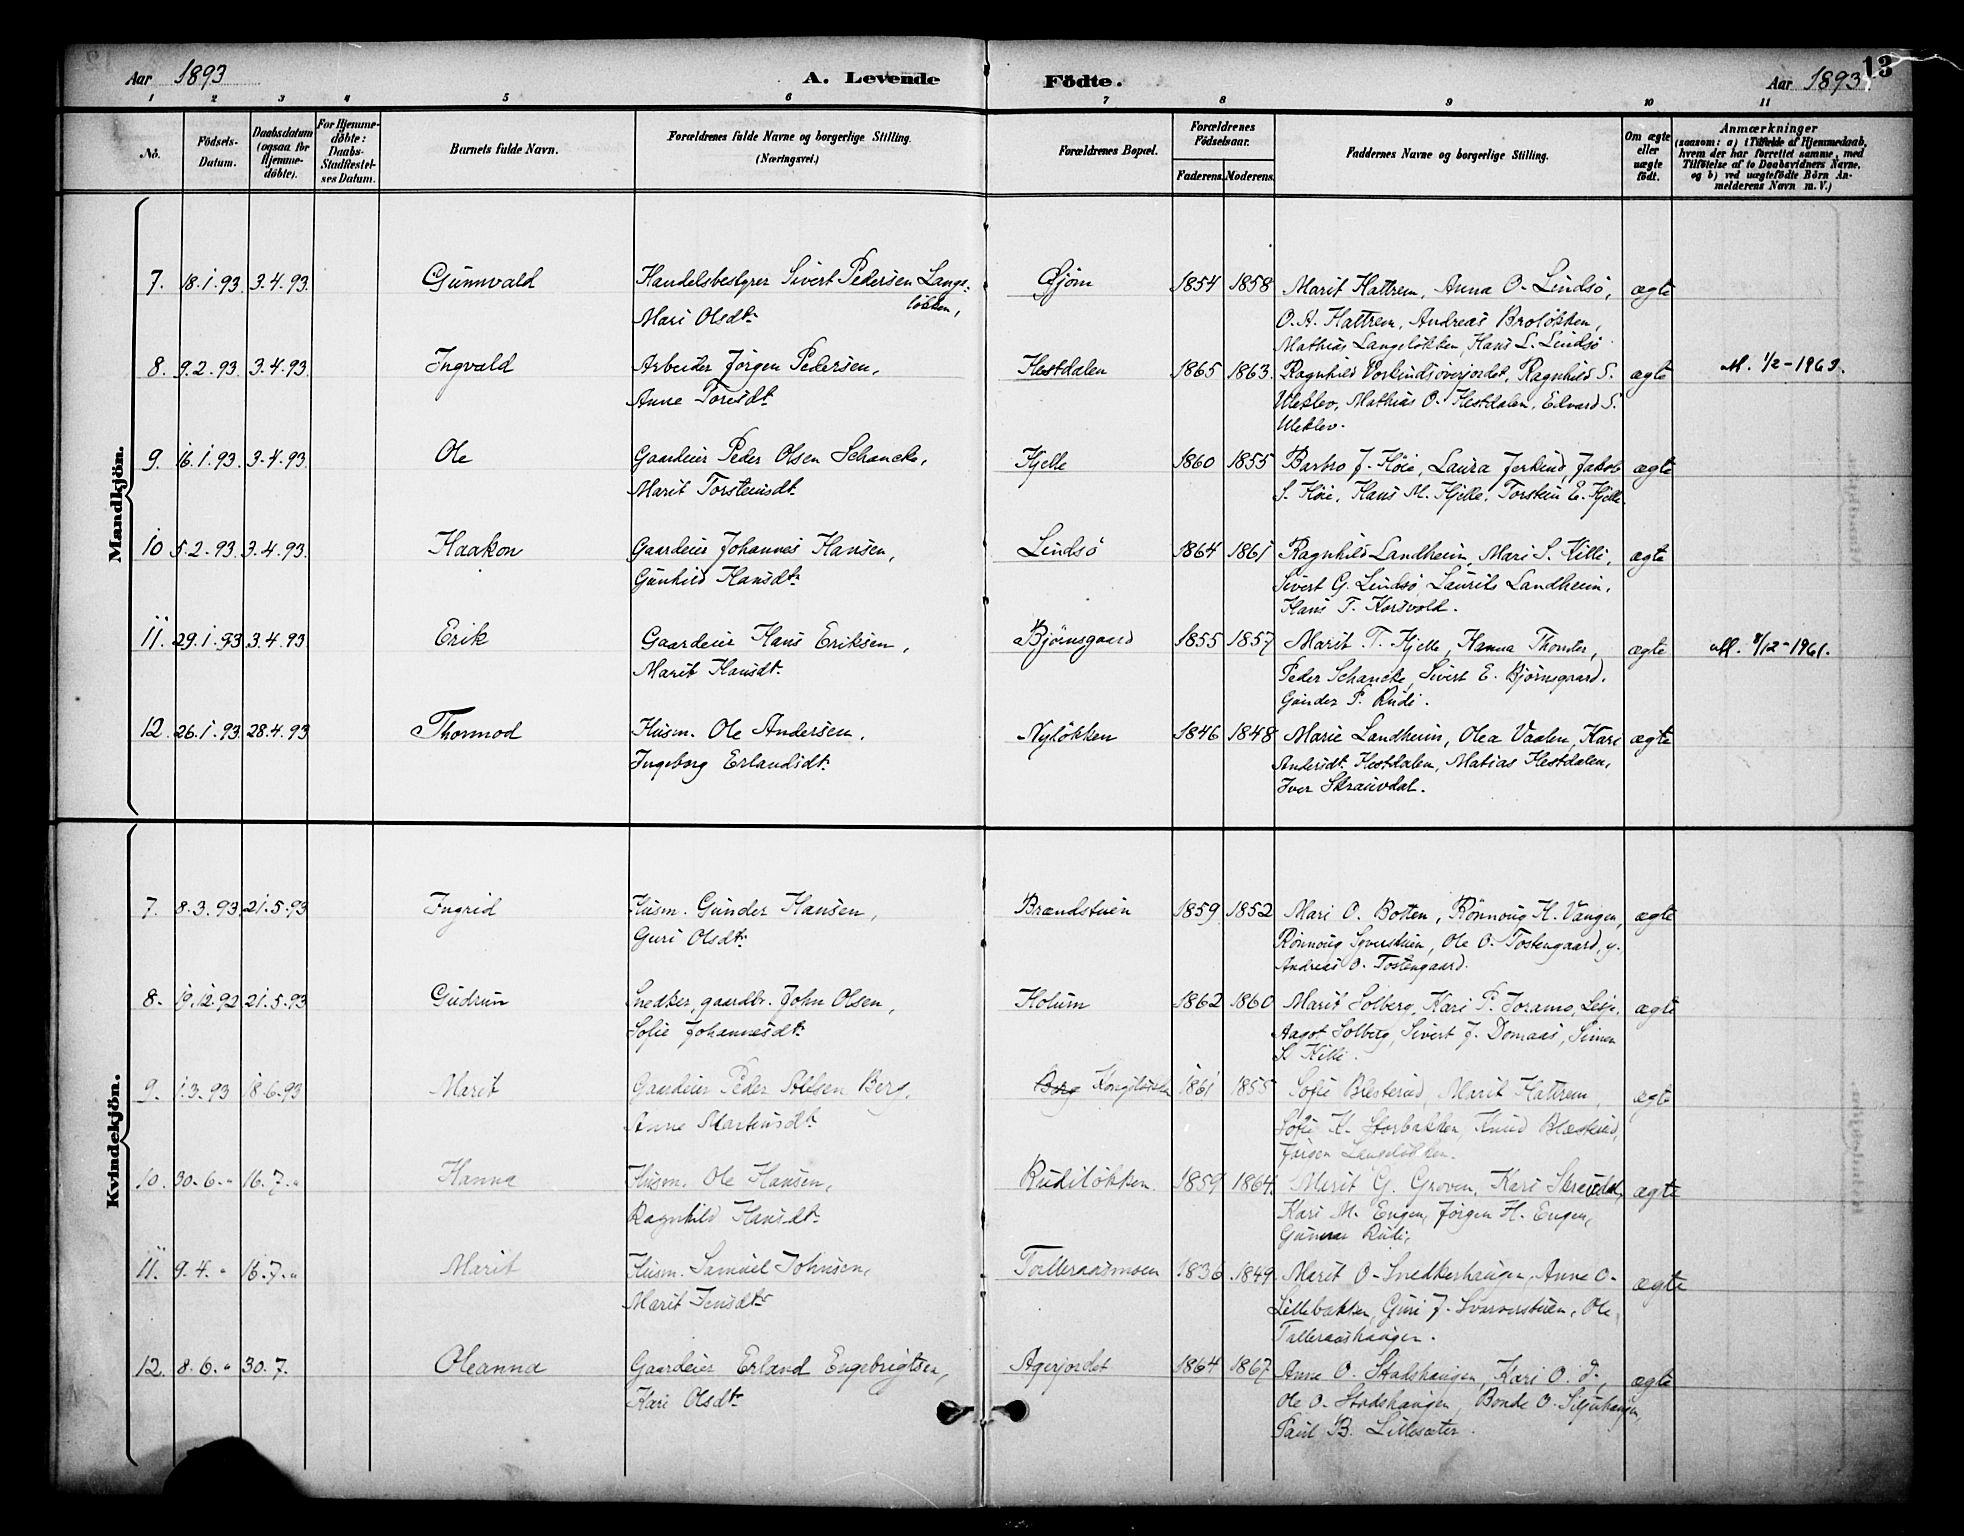 Aar 1893
A. Levende Födte.
Aar 1893.
13
1 2 3 4 5 6 7 8 9 10 11
No.
Födsels-Datum.
Daabsdatum (ogsaa for Hjemme-döbte).
For Hjemme-döbte: Daabs-Stadfæstel-ses Datum.
Barnets fulde Navn.
Forældrenes fulde Navne og borgerlige Stilling. (Næringsvei.)
Forældrenes Bopæl.
Forældrenes Födselsaar.
Faderens. Moderens.
Faddernes Navne og borgerlige Stilling.
Om ægte eller uægte födt.
Anmærkninger (saasom: a) i Tilfælde af Hjemmedaab, hvem der har forrettet samme, med Tilföielse af to Daabsvidners Navne, og b) ved uægtefödte Börn An-melderens Navn m. V.)
Mandkjön.
7. 18.1.93. 3.4.93. Gunnvald Handelsbestyrer Sivert Pedersen Lange- Gjöm 1854 1858 Marit Hattrem, Anna O. Lindsö, ægte
lökken,
Mari Olsdt. O. A. Hattrem, Andreas Brolökken,
Mathias Langelökken, Hans L. Lindsö.
8. 9.2.93. 3.4.93. Ingvald Arbeider Jörgen Pedersen, Hestdalen 1865 1863. Ragnhild Vorlundsoverjordet, Ragnhild S. ægte M. 1/2-1963.
Anne Toresdt. Uleklev, Mathias O. Hestdalen, Edvard S.
Uleklev.
9. 16.1.93. 3.4.93. Ole Gaardeier Peder Olsen Schancke, Kjelle 1860 1855 Barbro J. Höie, Laura Jerkind, Jakob ægte
Marit Torsteinsdt. S. Höie, Hans M. Kjelle, Torstein E. Kjelle
10 5.2.93. 3.4.93. Haakon Gaardeier Johannes Hansen, Lindsö 1864 1861 Ragnhild Landheim, Mari S. Killi, ægte
Gunhild Hansdt. Sivert G. Lindsö, Laurits Landheim,
Hans T. Korsvold.
11. 29.1.93 3.4.93. Erik Gaardeier Hans Eriksen, Björnsgaard 1855 1857 Marit T. Kjelle, Hanna Thonder, ægte M. 8/12-1961.
Marit Hansdt. Peder Schancke, Sivert E. Björnsgaard.
Gunder P. Rudi.
12. 26.1.93. 28.4.93 Thormod Husm. Ole Andersen, Nylökken 1846 1848 Marie Landheim, Olea Vaalen, Kari ægte
Ingeborg Erlandsdt. Andersdt. Hestdalen, Matias Hestdalen,
Iver Skrauvdal.
Kvindekjön.
7. 8.3.93 21.5.93 Ingrid Husm. Gunder Hansen, Brændstuen 1859 1852 Mari O. Botten, Rönnoug H. Vangen, ægte
Guri Olsdt. Rönnoug Syverstuen, Ole O. Tostengaard, y.
Andreas O. Tostengaard.
8. 19.12.92 21.5.93 Gudrun Snedker, gaardbr. John Olsen, Holum 1862 1860 Marit Solberg, Kari P. Joramo, Lesje, ægte
Sofie Johannesdt. Aagot Solberg, Sivert J. Domaas, Simen
S. Killi.
9. 1.3.93 18.6.93 Marit Gaardeier Peder Berg, Berg 1861 1855 Sofie Blesterud, Marit Hattrem, ægte
Anne Martinusdt. Sofie K. Storbakken, Knud Blæsterud,
Jörgen Langelökken.
10. 30.6.„ 16.7.„ Hanna Husm. Ole Hansen, Rudilökken. 1859 1864. Marit G. Groven, Kari Skrauvdal, ægte
Ragnhild Hansdt. Kari M. Engen, Jörgen H. Engen,
Gunnar Rudi.
11. 9.4.„ 16.7.„ Marit Husm. Samuel Johnsen, Talleraasmoen 1836 1849. Marit O. Snedkerhaugen, Anne O. ægte
Marit Jensdt. Lillebakken, Guri J. Svarverstuen, Ole
Talleraashaugen.
12. 8.6.„ 30.7. Oleanna Gaardeier Erland Engebrigtsen, Agerjordet 1864 1867 Anne O. Stadshaugen, Kari O. d., ægte
Kari Olsdt. Ole O. Stadshaugen, Bonde O. Siljuhaugen,
Paul B. Lillesæter.